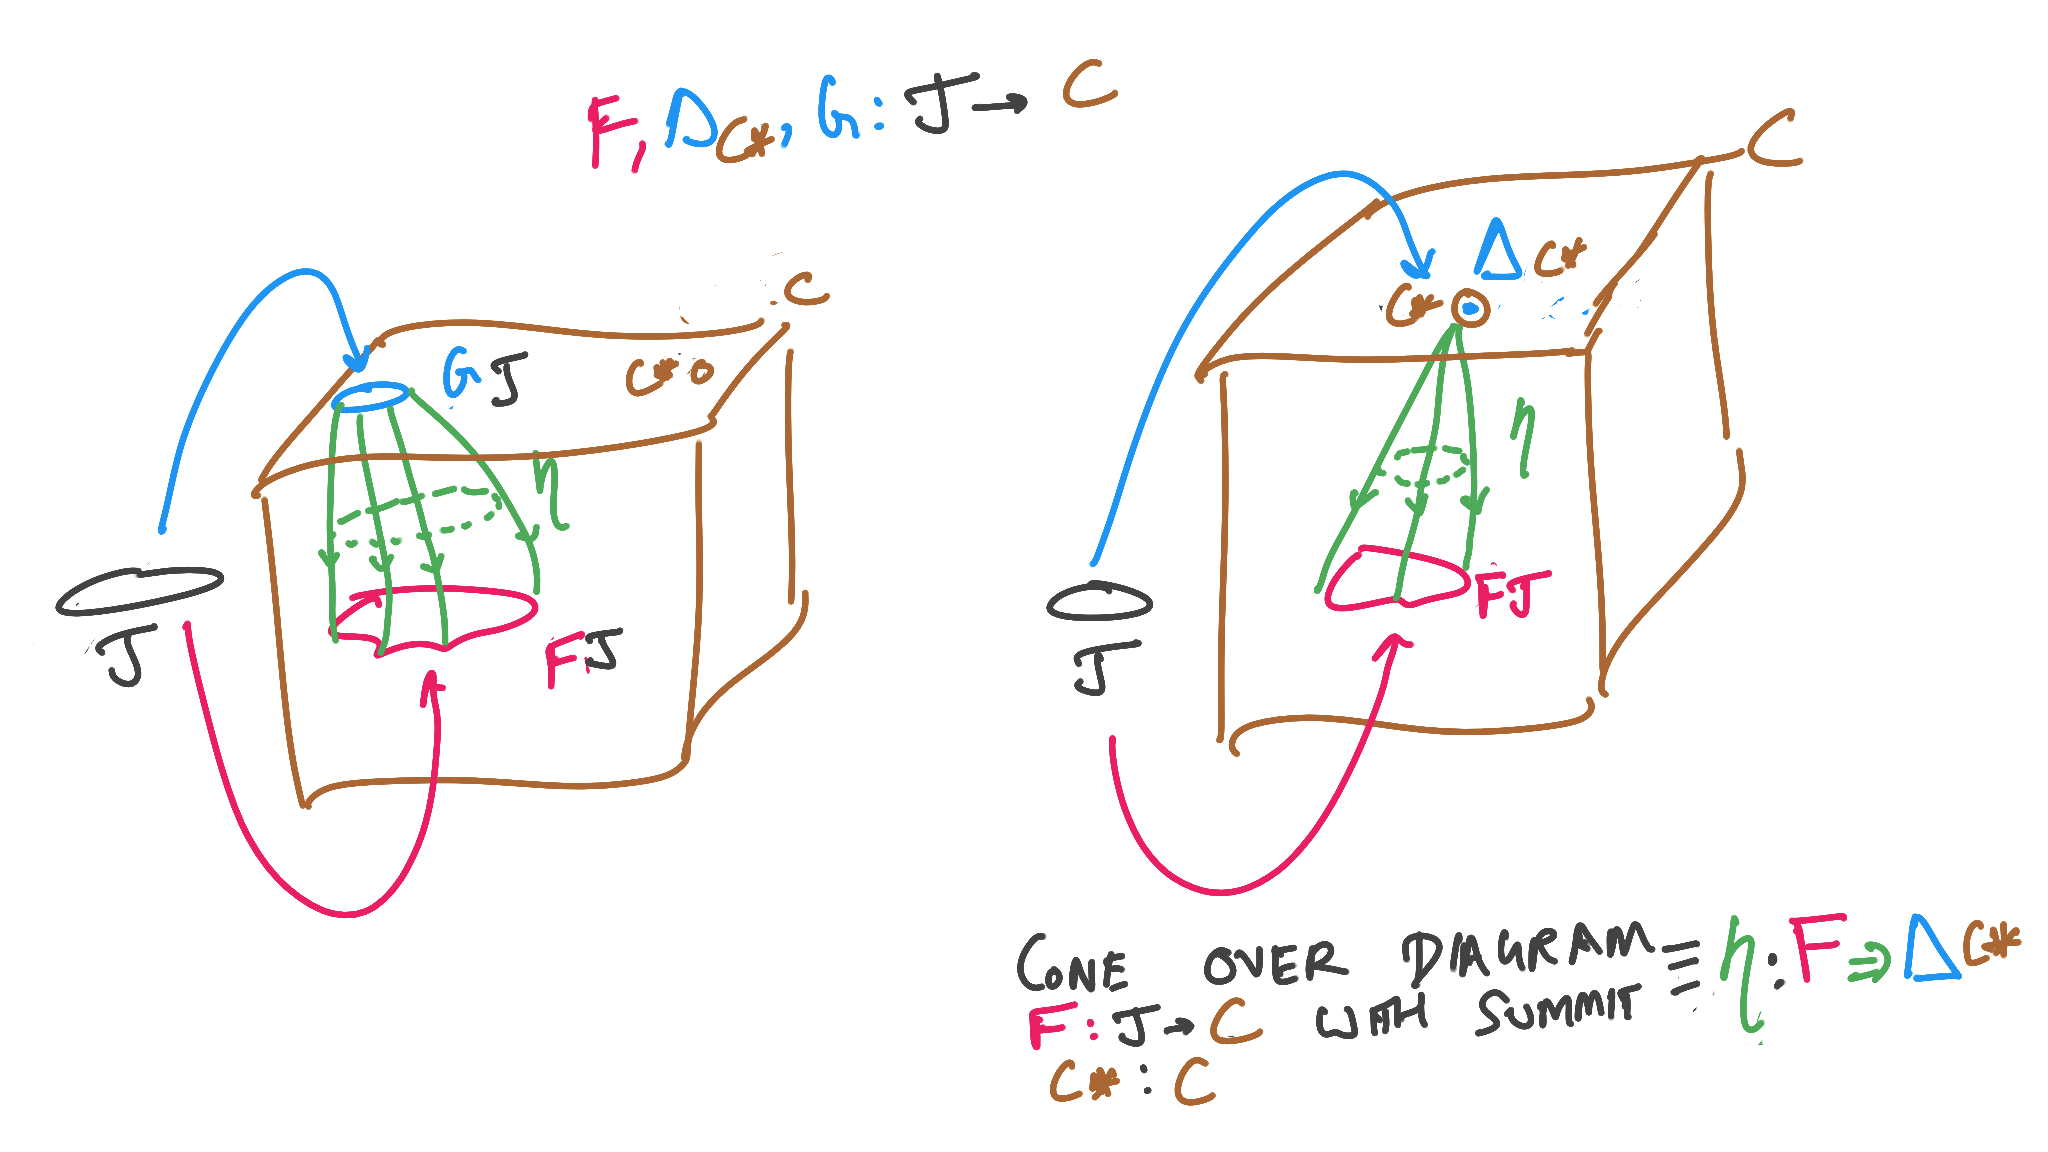 F, Δ C*, G: J → C
C
G J
C* o
η
J
F J
C
Δ C*
C*
η
J
FJ
CONE OVER DIAGRAM ≡ η: F ⇒ Δ C*
F: J → C WITH SUMMIT
C* : C